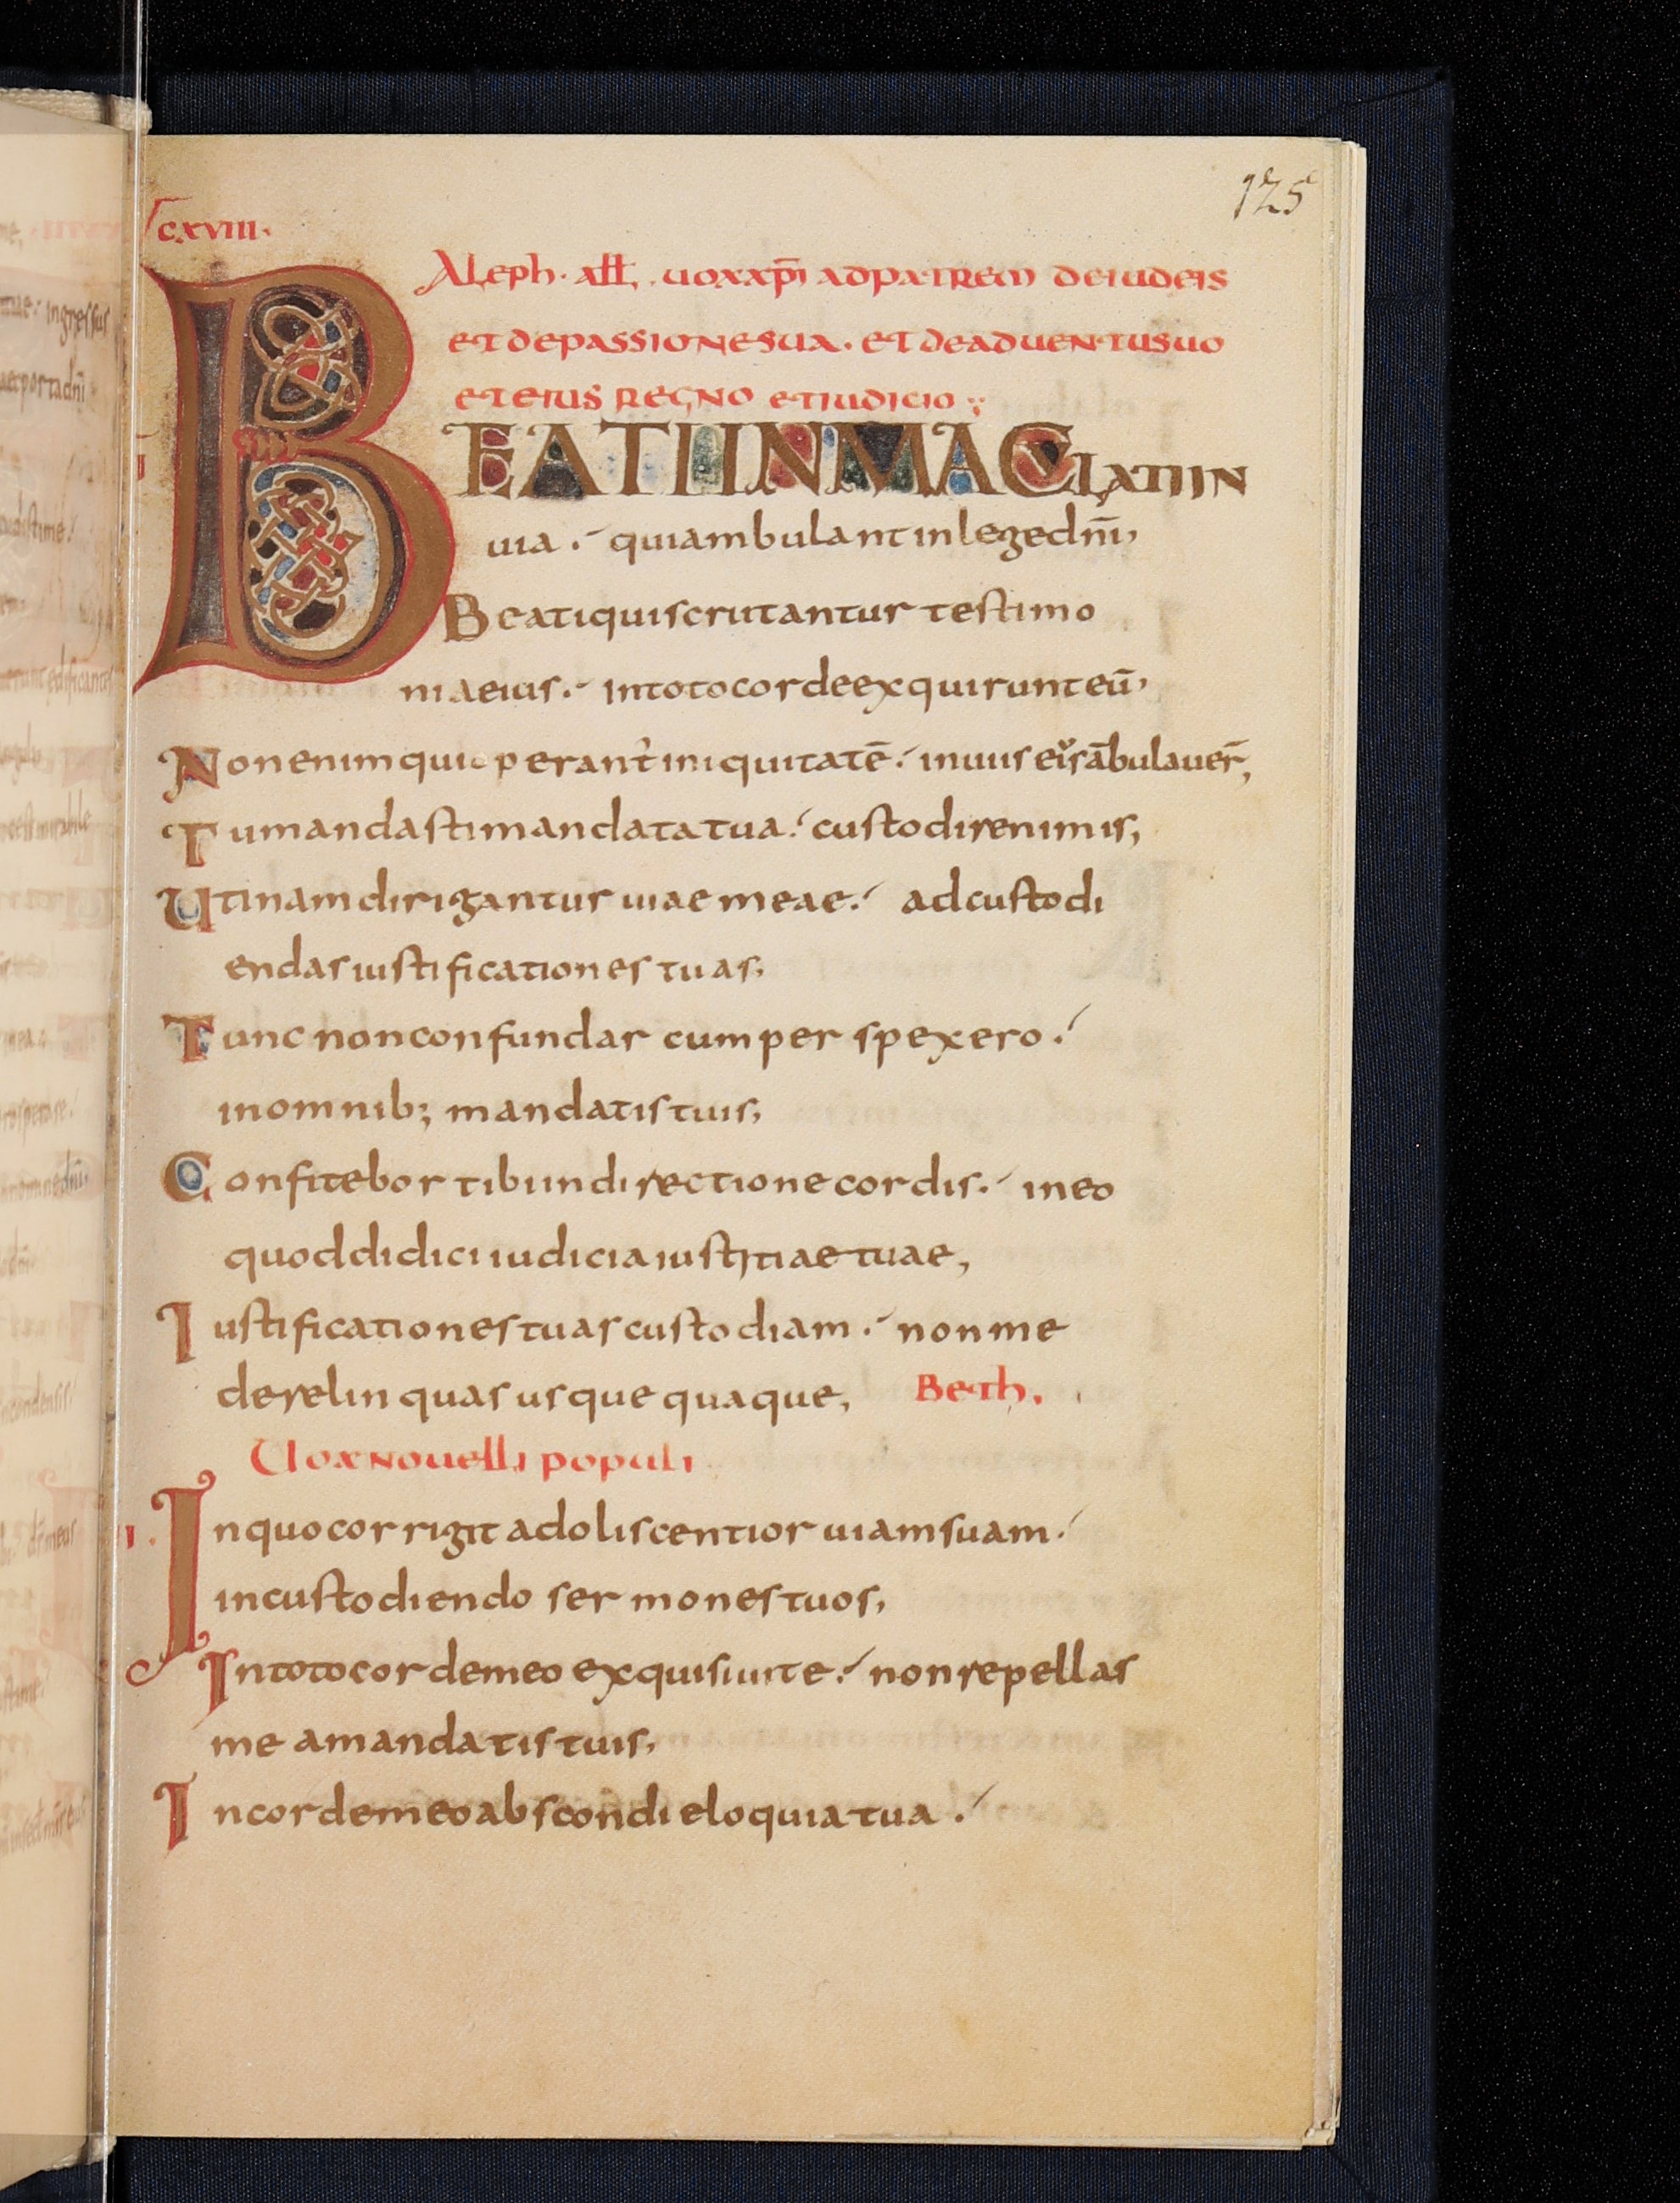 125
CXVIII.
Aleph. all. uox xp̄i ad patrem de iudeis
et de passione sua. et de aduentu suo
et eius regno et iudicio
BEATI INMACULATI IN
uia. qui ambulant in lege dn̄i,
Beati qui scrutantur testimo
nia eius. in toto corde exquirunt eū,
Non enim qui operant̉ iniquitatē. in uiis eiꝰ ābulauer̄,
Tu mandasti mandata tua. custodire nimis,
Utinam dirigantur uiae meae. ad custodi
endas iustificationes tuas,
Tunc non confundar cum perspexero.
in omnib; mandatis tuis,
Confitebor tibi in directione cordis. in eo
quod didici iudicia iustitiae tuae,
Iustificationes tuas custodiam. non me
derelinquas usquequaque, Beth.
Uox nouelli populi
In quo corrigit adoliscentior uiam suam.
in custodiendo sermones tuos,
In toto corde meo exquisiui te. non repellas
me a mandatis tuis,
In corde meo abscondi eloquia tua.